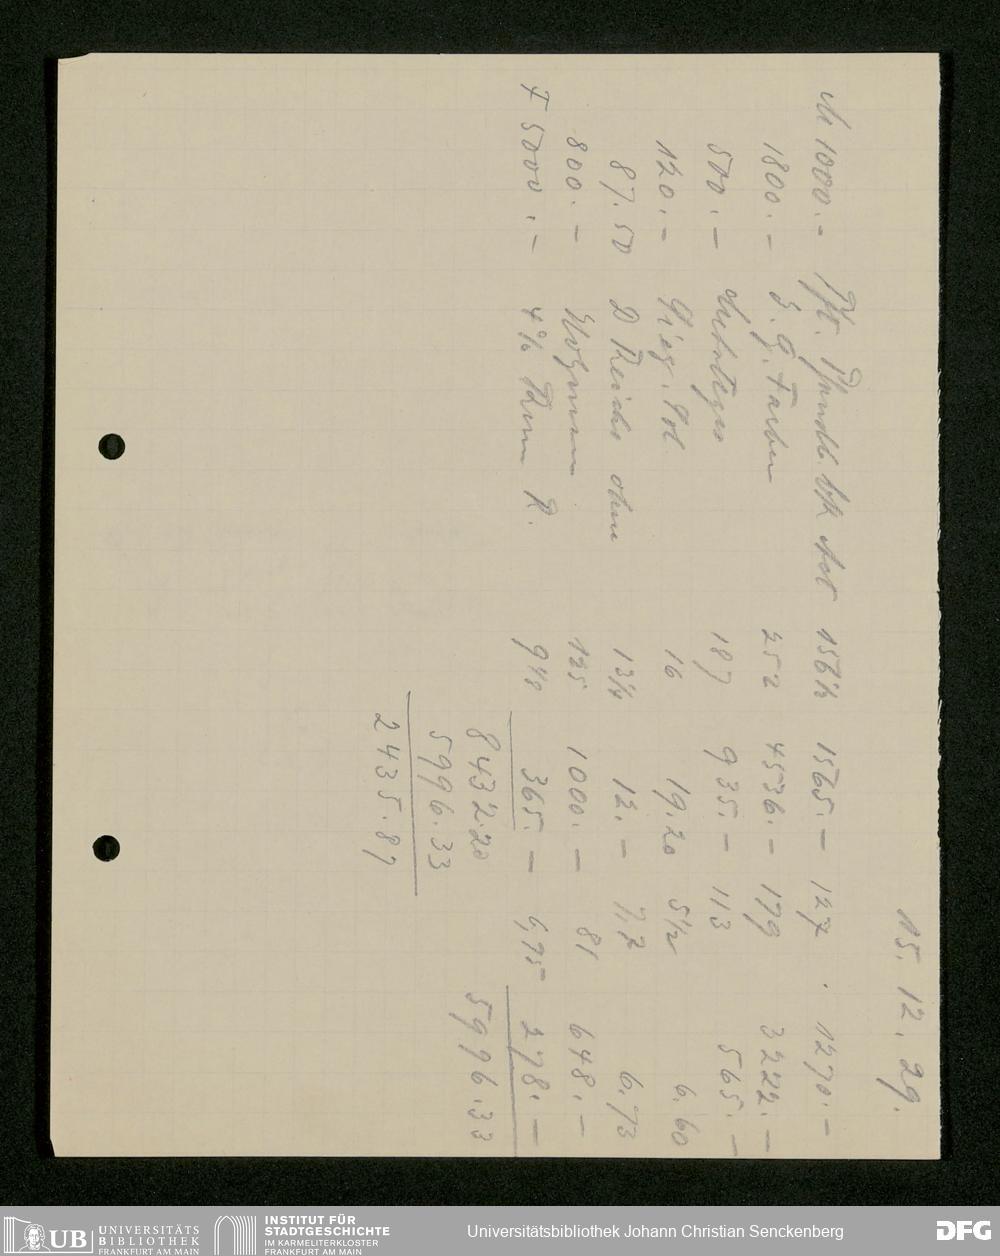 15. 12. 29.
M 1000.- Pft. Pfandb. bk 156½ 1565.- 127 . 1270.-
1800.- I. G. Farben 252 4536.- 179 3222.-
500.- 187 935.- 113 565.-
120.- 16 19.20 5½ 6.60
87.50 D Reichs ohne 13¾ 12.- 7,7 6.73
800.- 125 1000.- 81 648.-
5000.- 4% Rum R. 365.- 278.-
8432.20 5996.33
5996.33
2435.87
UB UNIVERSITÄTS
BIBLIOTHEK
FRANKFURT AM MAIN
INSTITUT FÜR
STADTGESCHICHTE
IM KARMELITERKLOSTER
FRANKFURT AM MAIN
Universitätsbibliothek Johann Christian Senckenberg
DFG